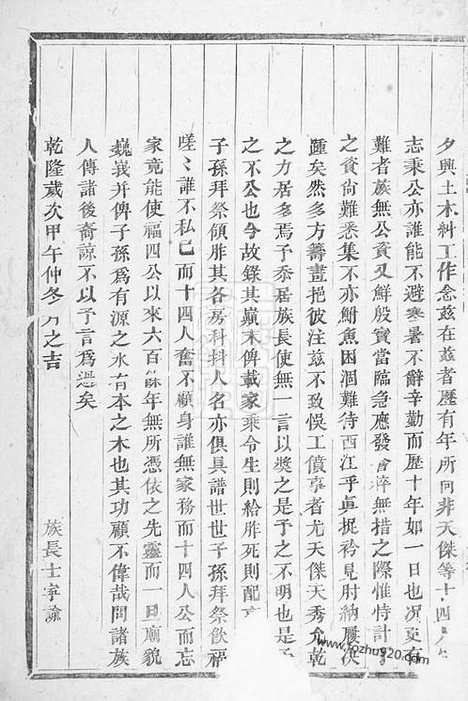 夕興土木糾工作念茲在茲者歷有年所向非天傑等十四
志秉公亦誰能不避寒暑不辭辛勤而歷十年如一日也况更有
難者族無公貲又鮮殷實當臨急應發會猝無措之際惟恃計
之資尙難悉集不亦鮒魚困涸難待西江乎眞捉衿見肘納屨决
踵矣然多方籌畫把彼注茲不致悞工僨事者尤天傑天秀允乾
之力居多焉予忝居族長使無一言以獎之是予之不明也是
之不公也今故錄其巔末俾載家乘令生則給胙死則配
子孫拜祭頒胙其各房科抖人名亦俱具譜世世子孫拜祭飲福
嗟〻誰不私已而十四人奮不顧身誰無家務而十四人公而忘
家竟能使福四公以來六百餘年無所憑依之先靈而一旦廟貌
巍峩并俾子孫爲有源之水有本之木也其功顧不偉哉問諸族
人傳諸後裔諒不以予言爲過矣
乾隆歲次甲午仲冬月之吉
族長士字諭
www.fozhu920.com